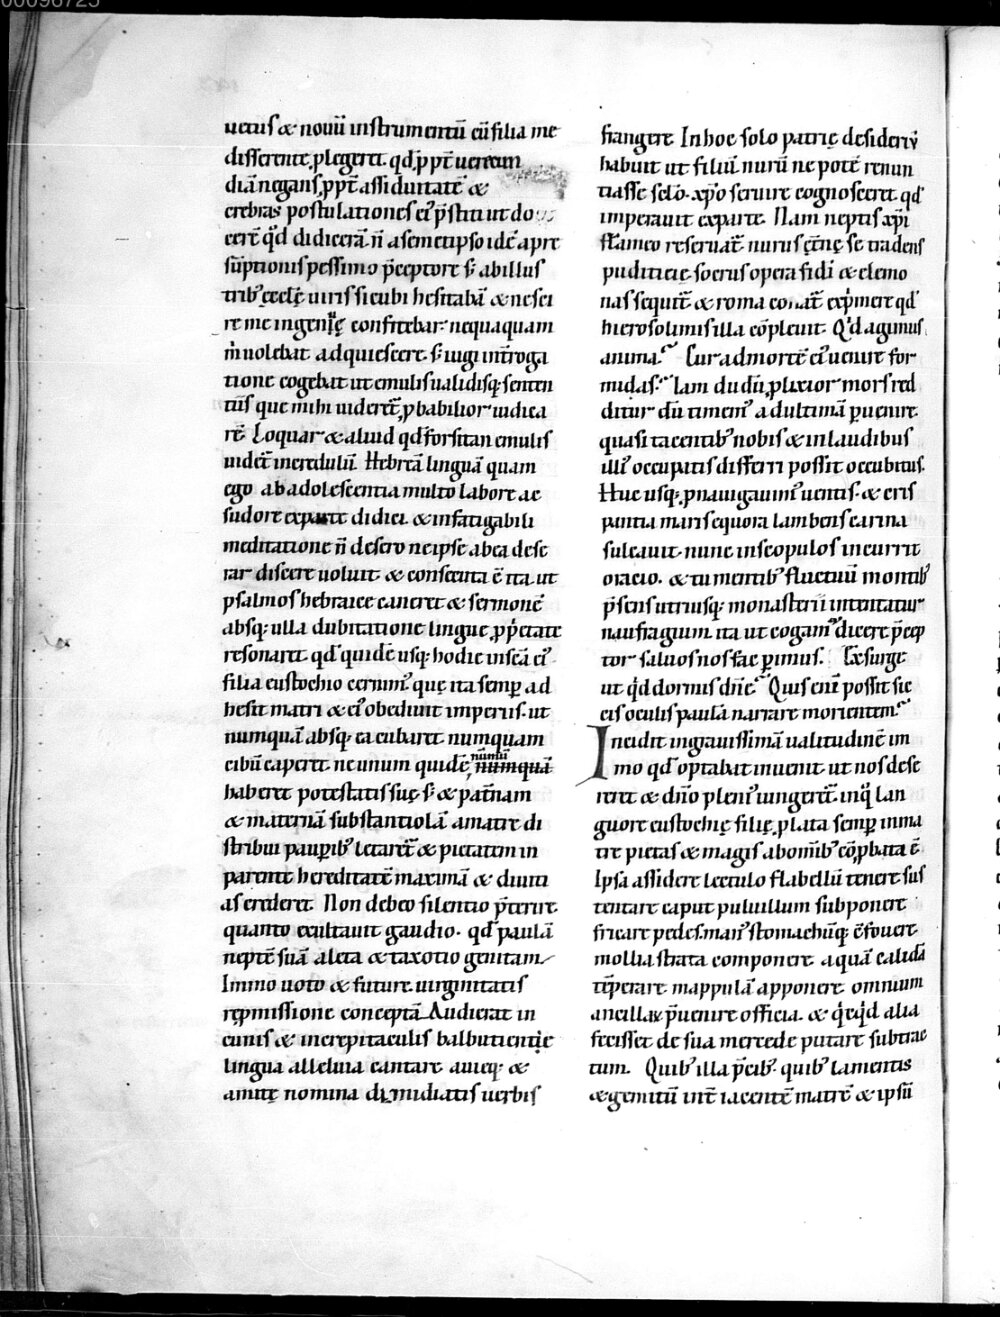 00096725
uetus & nouū instrumentū cū filia me
differente ꝓlegeret. qđ ꝓpt̄ uerecun
diā negans, ꝓpt̄ assiduitatē &
crebras postulationes ei᾽ p̄stiti ut do
cerē qđ didicerā. n̄ a semetipso idē a pre
sūptionis pessimo p̄ceptore. s; ab illus
trib; ęcclę uiris. sicubi hesitabā & nesci
re me ingenuę confitebar. nequaquam
m̄ uolebat adquiescere. s; iugi int̄roga
tione cogebat ut e multis ualidisq; senten
tiis que mihi uideret̄ ꝓbabilior iudica
rē. Loquar & aliud qđ forsitan emulis
uideat̄ incredulū. Hebreā linguā quam
ego ab adolescentia multo labore ac
sudore ex parte didici. & infatigabili
meditatione n̄ desero ne ipse ab ea dese
rar. discere uoluit. & consecuta ē ita. ut
psalmos hebraice caneret & sermonē
absq; ulla dubitatione lingue ꝓp̄etate
resonaret. qđ quidē usq; hodie in scā ei᾽
filia eustochio cernim᾽. que ita semꝑ ad
hesit matri & ei᾽ obediuit imperiis. ut
numquā absq; ea cubaret. numquam
cibū caperet. ne unum quidē nūmū numquā
haberet potestatis suę. s; & pat̄nam
& maternā substantiolā a matre di
stribui pauꝑib; letaret̄. & pietatem in
parentē hereditatē maximā & diuiti
as crederet. Non debeo silentio p̄terire.
quanto exultauit gaudio. qđ paulā
neptē suā a leta & taxotio genitam
Immo uoto & future uirginitatis
repmissione conceptā. Audierat in
cunis & increpitaculis balbutientie
lingua alleluia cantare. auieq; &
amitę nomina dimidiatis uerbis
frangere. In hoc solo patrię desideriū
habuit ut filiū. nurū. neꝑotē renun
tiasse sc̄lo. xp̄o seruire cognosceret. qđ
imperauit ex parte. Nam neptis xp̄i
flameo reseruat̄. nurus et̄nę se tradens
pudicitię. socrus opera fidi & elemo
nas sequit̄. & roma conat̄ exp̄mere qđ
hierosolimis illa cōpleuit. Q'd agimus
anima? Cur ad mortē ei᾽ uenire for
midas? Iam dudū ꝓlixior mors red
ditur. dū timem᾽ ad ultimā ꝑuenire.
quasi tacentib; nobis & in laudibus
illi᾽ occupatis differri possit occubitus.
Huc usq; ꝓnauigauim᾽ uentis. & cris
pantia maris equora lambens carina
sulcauit. nunc in scopulos incurrit
oratio. & tumentib; fluctuū montib;
p̄sens utriusq; monasterii intentatur
naufragium. ita ut cogam᾽ dicere. p̄cep
tor saluos nos fac ꝑimus. Exsurge
ut qđ dormis dn̄e? Quis enī possit sic
cis oculis paulā narrare morientem?
Incidit in grauissimā ualitudinē. im
mo qđ optabat inuenit. ut nos dese
reret & dn̄o pleni᾽ iungeret̄. in q̄ lan
guore eustochię filię ꝓlata semꝑ in ma
tre pietas & magis ab om̄ib; cōꝓbata ē.
Ipsa assidere lectulo. flabellū tenere. sus
tentare caput. puluillum subponere.
fricare pedes. man᾽ stomachūq; cōfouere.
mollia strata componere. aquā calidā
tēperare. mappulā apponere. omnium
ancillaꝝ p̄uenire officia. & q̄cq̄d alia
fecisset. de sua mercede putare subtrac
tum. Quib; illa p̄cib; quib; lamentis
& gemitū int̄ iacentē matrē & ipsū